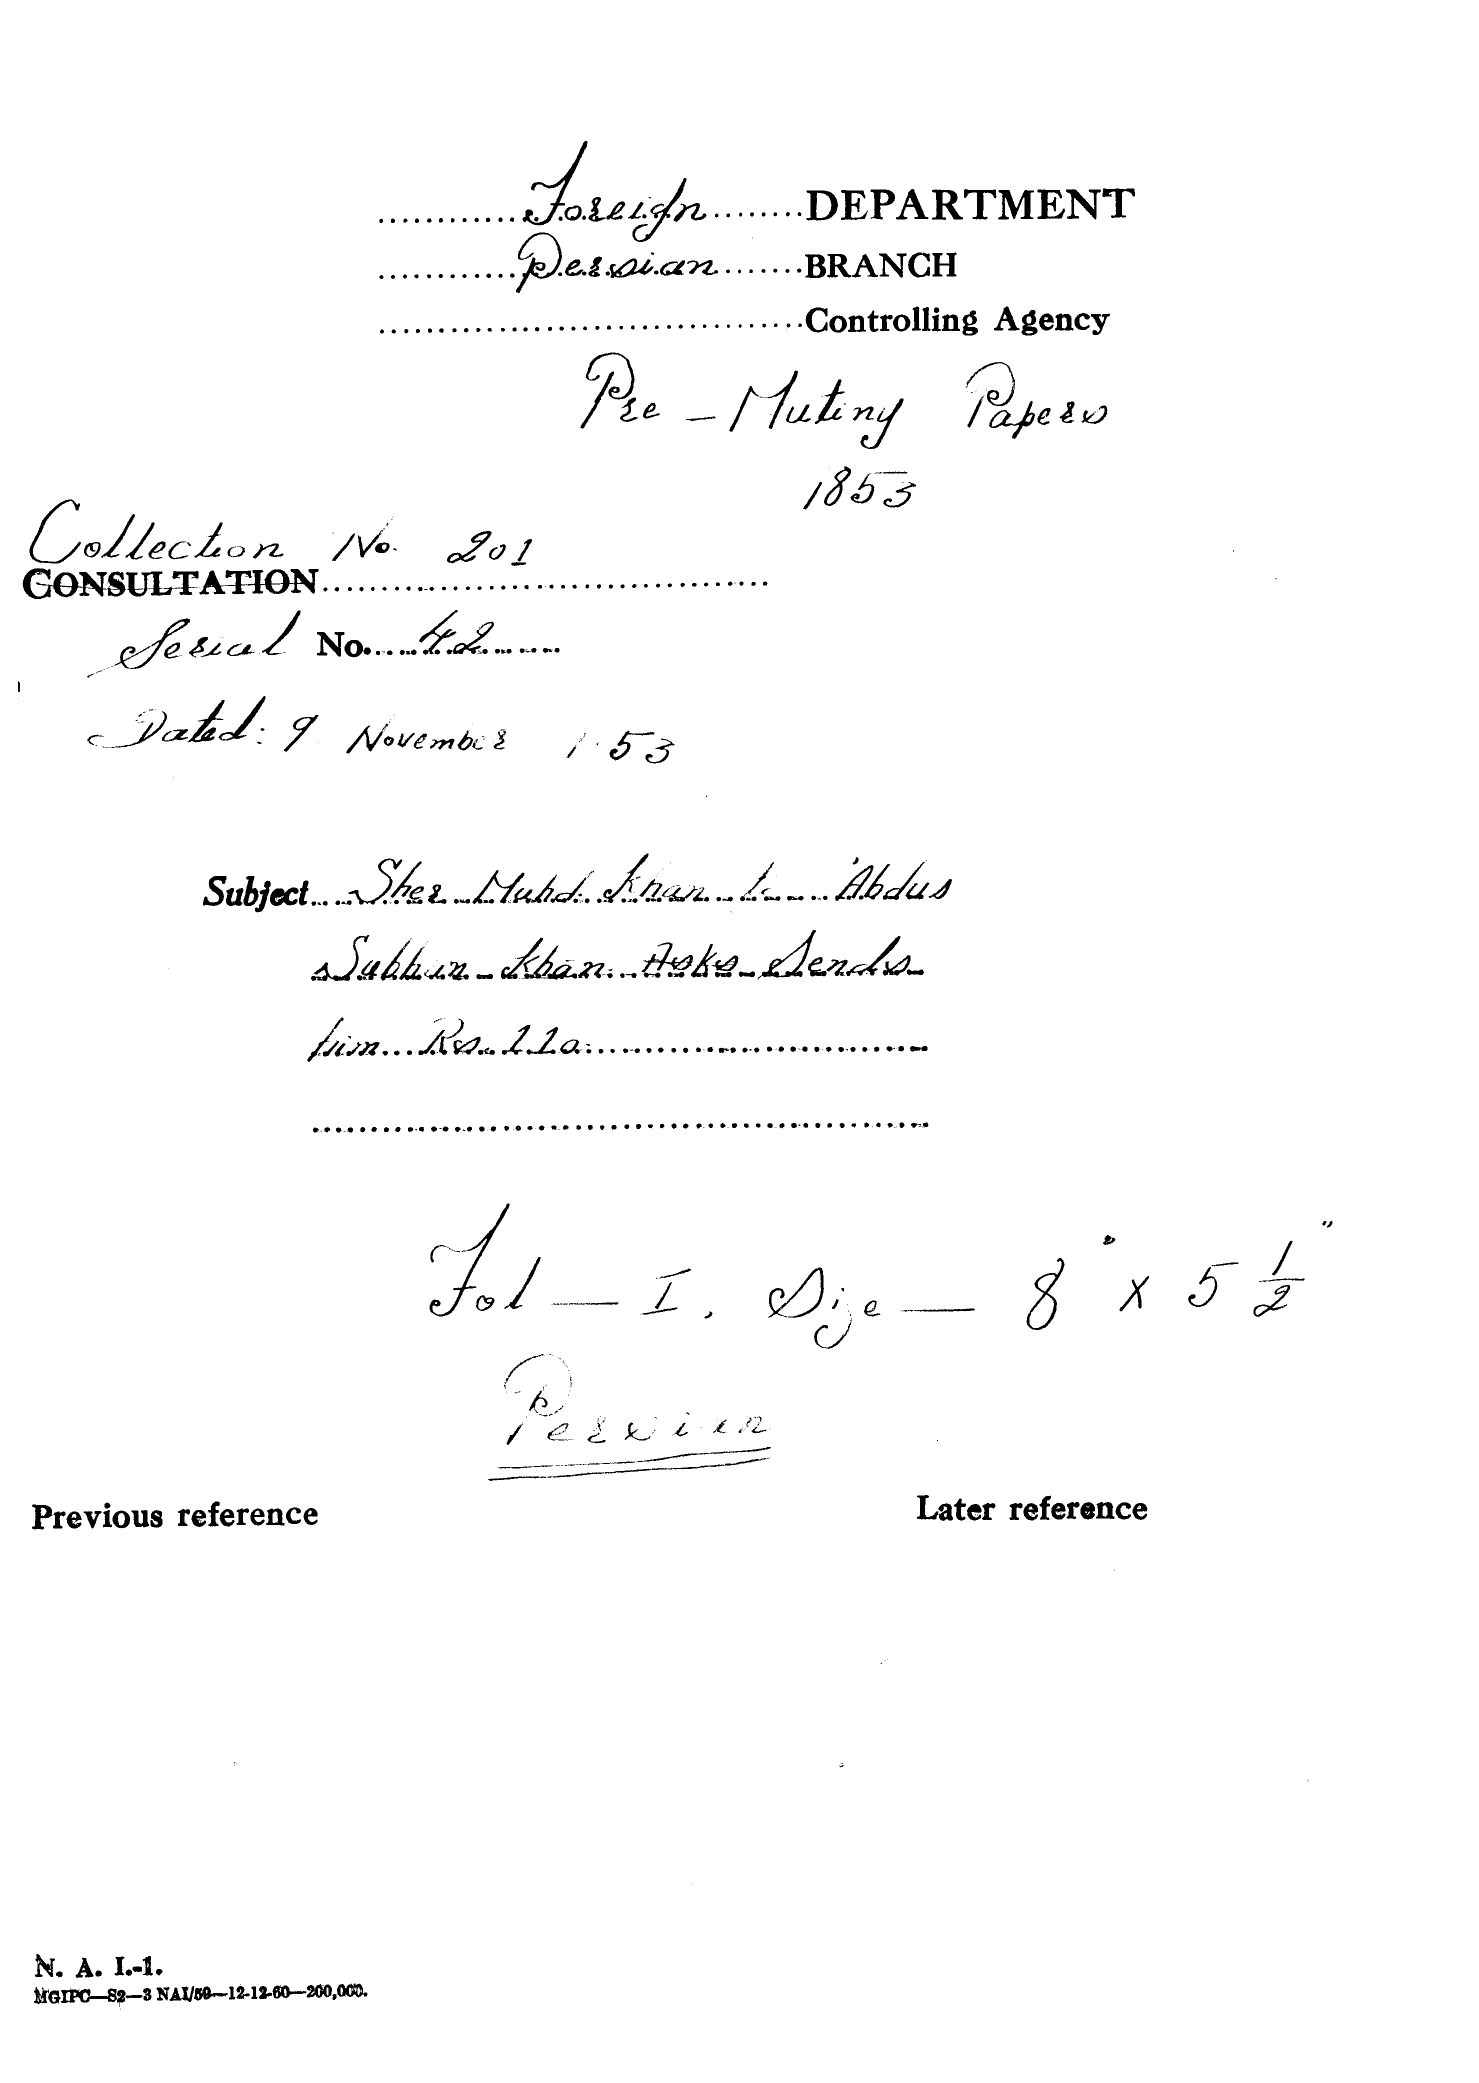 Foreign DEPARTMENT
Persian BRANCH
Controlling Agency
Pre - Mutiny Papers
1853
Collection No. 201
CONSULTATION
Serial No. 42
Dated: 9 November 1853
Subject Sher Muhd. Khan to 'Abdus
Subhan Khan. Asks Sends
him Rs. 110.
Fol — I. Size — 8" x 5 1/2"
Persian
Previous reference
Later reference
N. A. I.-1.
MGIPC—S2—3 NAI/59—12-12-60—200,000.